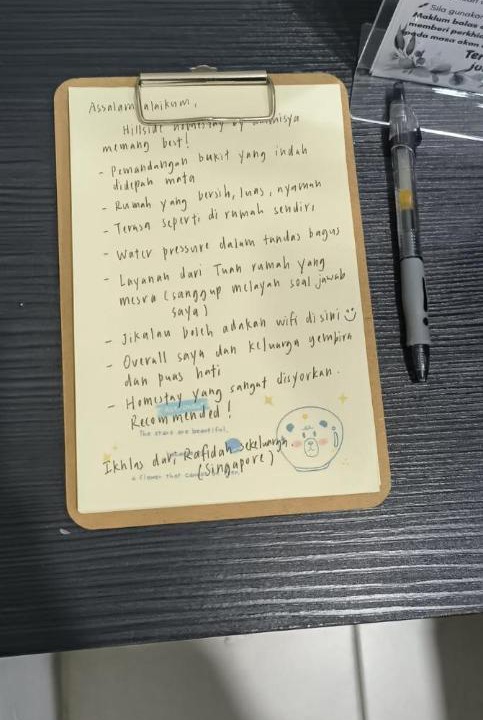 Assalamualaikum,
Hillside Homestay by
memang best!
- Pemandangan bukit yang indah
didepan mata
- Rumah yang bersih, luas, nyaman
- Terasa seperti di rumah sendiri
- Water pressure dalam tandas bagus
- Layanan dari Tuan rumah yang
mesra (sanggup melayan soal jawab
saya)
- Jikalau boleh adakan wifi disini
- Overall saya dan keluarga gembira
dan puas hati
- Homestay yang sangat disyorkan.
Recommended!
The stars are beautiful,
Ikhlas dari Rafidah sekeluarga
(Singapore)
a flower that
Sila gunakan
Maklum balas
memberi
pada masa akan